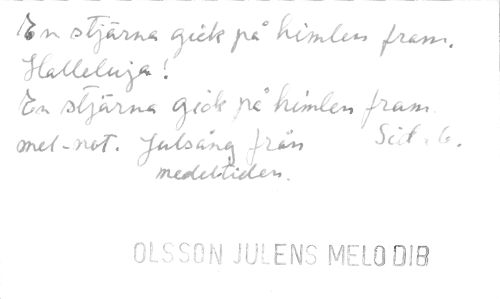 En stjärna gick på himlen fram.
Halleluja!
En stjärna gick på himlen fram.
mel-not. Julsång från Sid. 6.
medeltiden.
OLSSON JULENS MELODIB